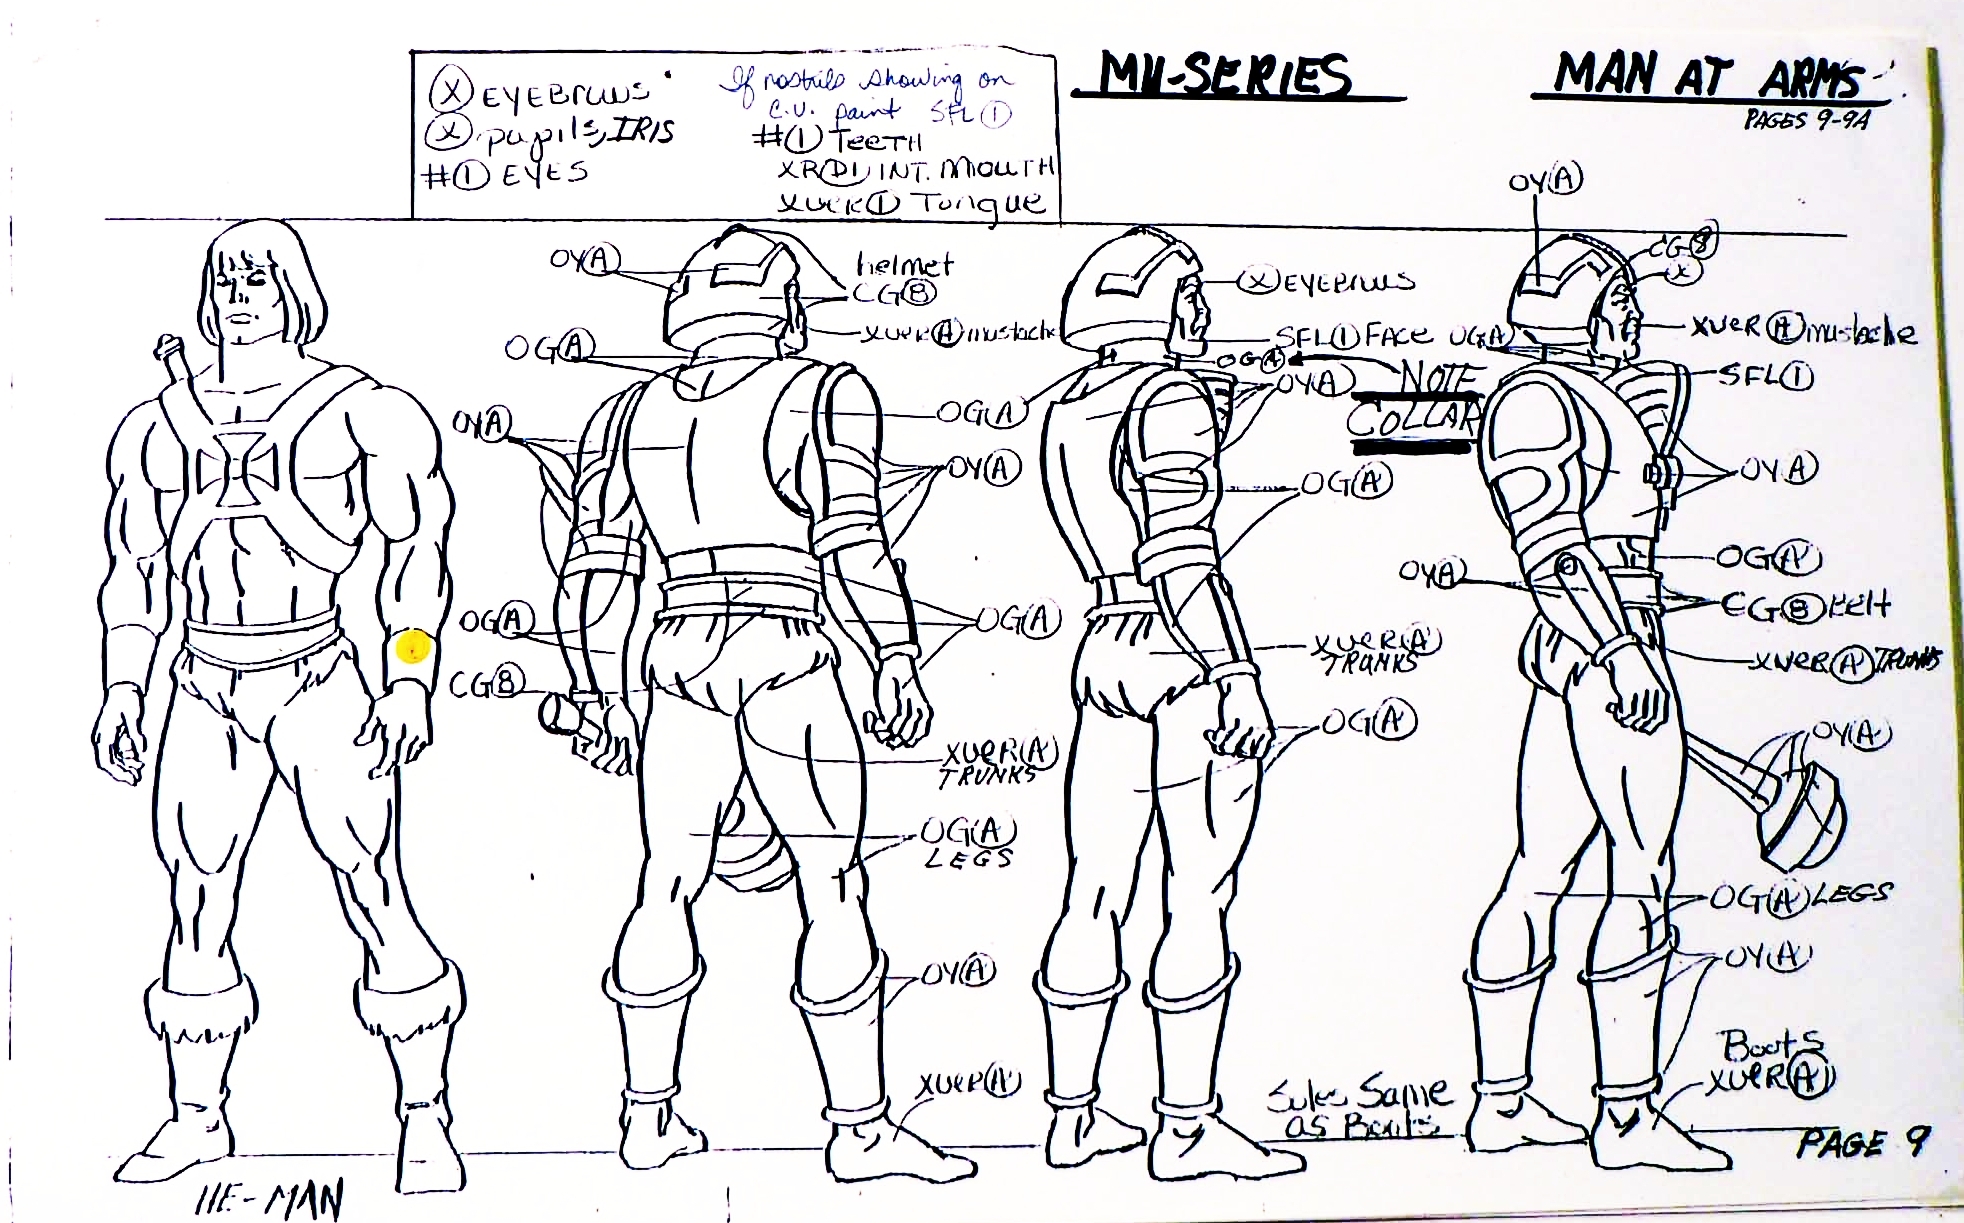 Ⓧ EYEBROWS
Ⓧ pupils, IRIS
#① EYES
If nostrils showing on
C.U. paint SFL ①
#① TEETH
XR(D) INT. MOUTH
XVER ① Tongue
MU-SERIES
MAN AT ARMS
PAGES 9-9A
OYⒶ
helmet
CGⒷ
XVERⒶ mustache
OGⒶ
OYⒶ
OGⒶ
OYⒶ
OGⒶ
OGⒶ
CGⒷ
XVERⒶ
TRUNKS
OGⒶ
LEGS
OYⒶ
XVERⒶ
Ⓧ EYEBROWS
SFL① FACE
OGⒶ
OGⒶ
OYⒶ
NOTE
COLLAR
OGⒶ
XVERⒶ
TRUNKS
OGⒶ
Soles Same
as Boots
OYⒶ
CGⒷ
Ⓧ
XVERⒶ mustache
SFL①
OYⒶ
OYⒶ
OGⒶ
CGⒷ belt
XVERⒶ TRUNKS
OYⒶ
OGⒶ LEGS
OYⒶ
Boots
XVERⒶ
HE-MAN
PAGE 9